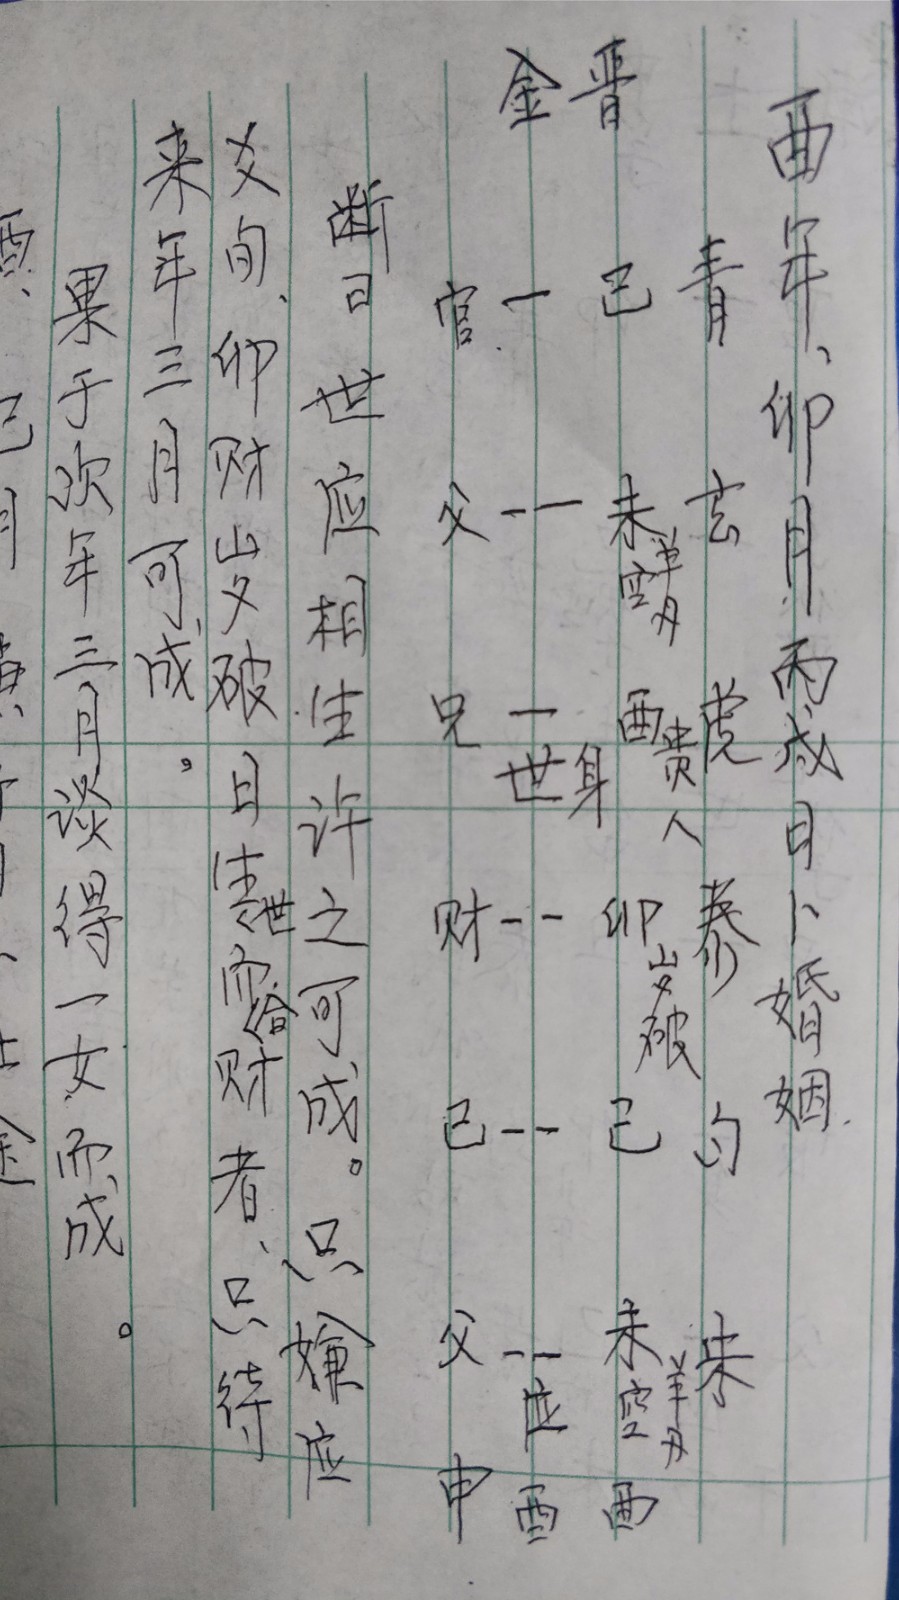 酉年、卯月丙戌日卜婚姻.
青玄虎 勾朱
晋 巳 未空羊刃 酉贵人 卯岁破 巳 未空羊刃 酉
金 一 -- 一世身 -- -- --应 酉
官 父 兄 财 巳 父 申
断曰世应相生许之可成。只嫌应
爻旬、卯财岁破日生世而合财者、只待
来年三月可成。
果于次年三月谈得一女而成。